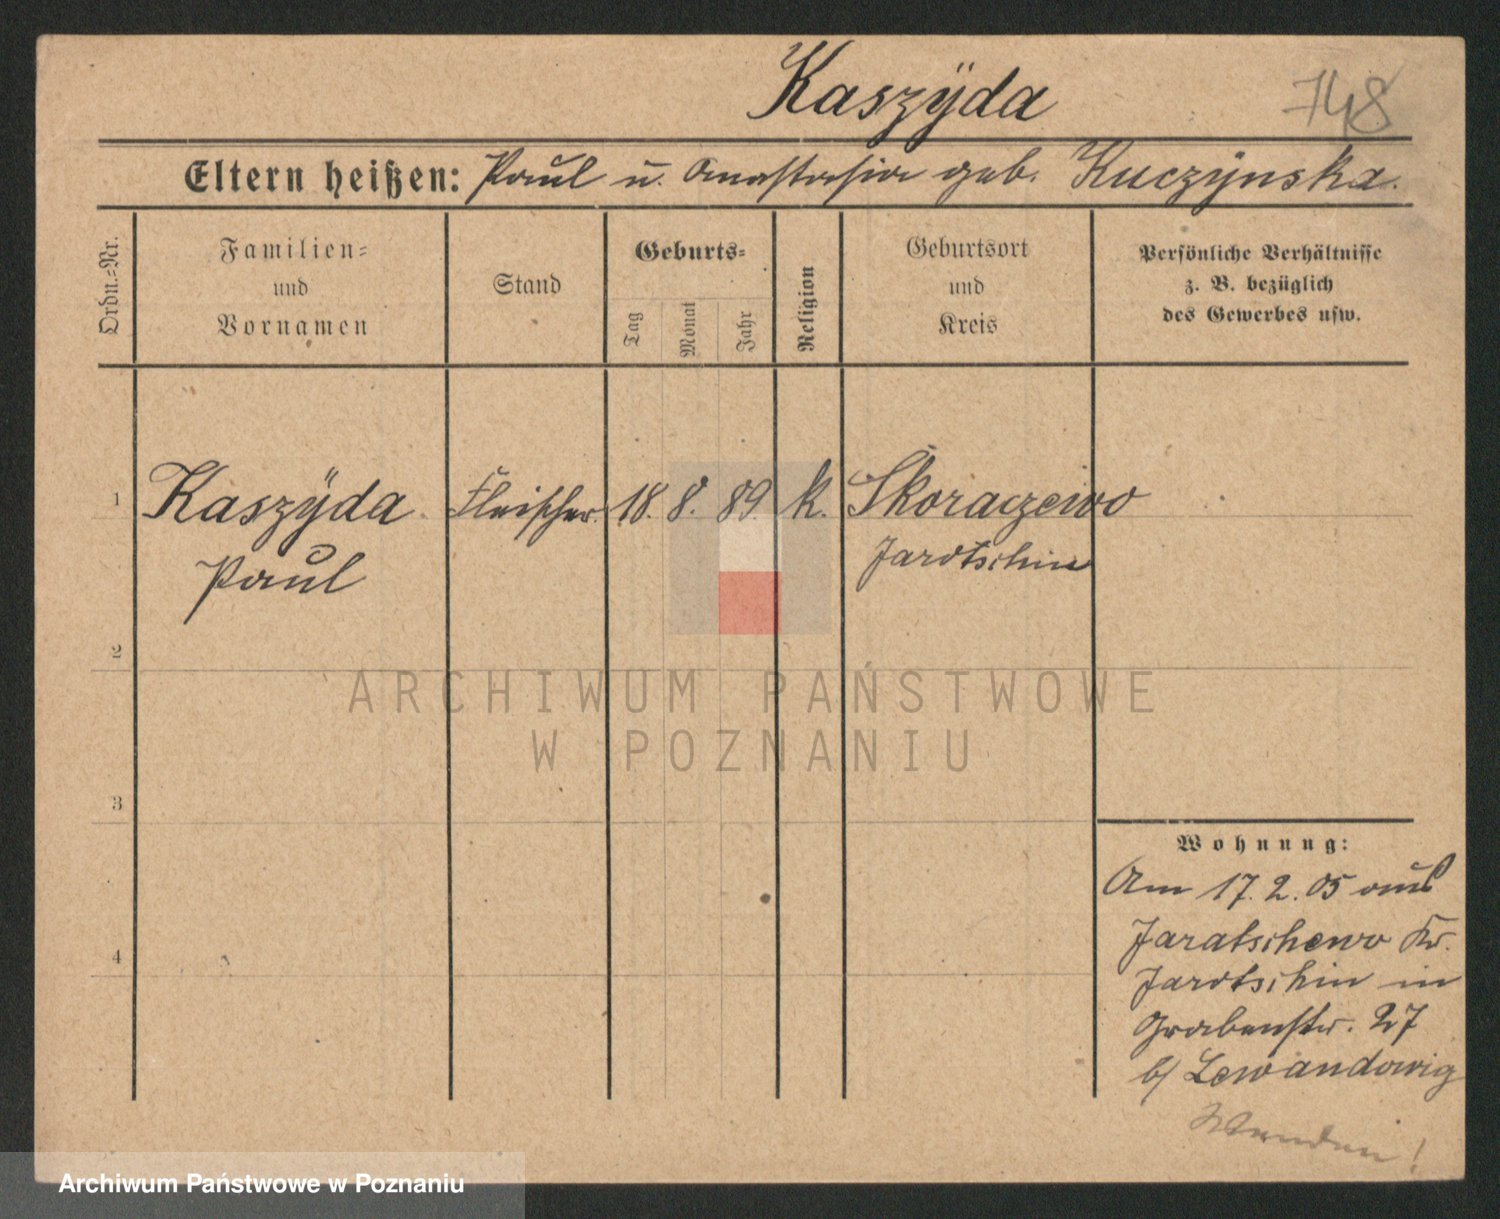 Kaszÿda
748
Eltern heißen: Paul u. Anastasia geb. Kuczÿnska.
Ordn.=Nr.
Familien=
und
Vornamen
Stand
Geburts=
Tag
Monat
Jahr
Religion
Geburtsort
und
Kreis
Persönliche Verhältnisse
z. B. bezüglich
des Gewerbes usw.
1 Kaszÿda Fleischer. 18. 8. 89. k. Skoraczewo
Paul Jarotschin
2
3
4
Wohnung:
Am 17. 2. 05 aus
Jaratschewo Kr.
Jarotschin in
Grabenstr. 27
b/ Lewandowig
Wenden!
ARCHIWUM PAŃSTWOWE
W POZNANIU
Archiwum Państwowe w Poznaniu